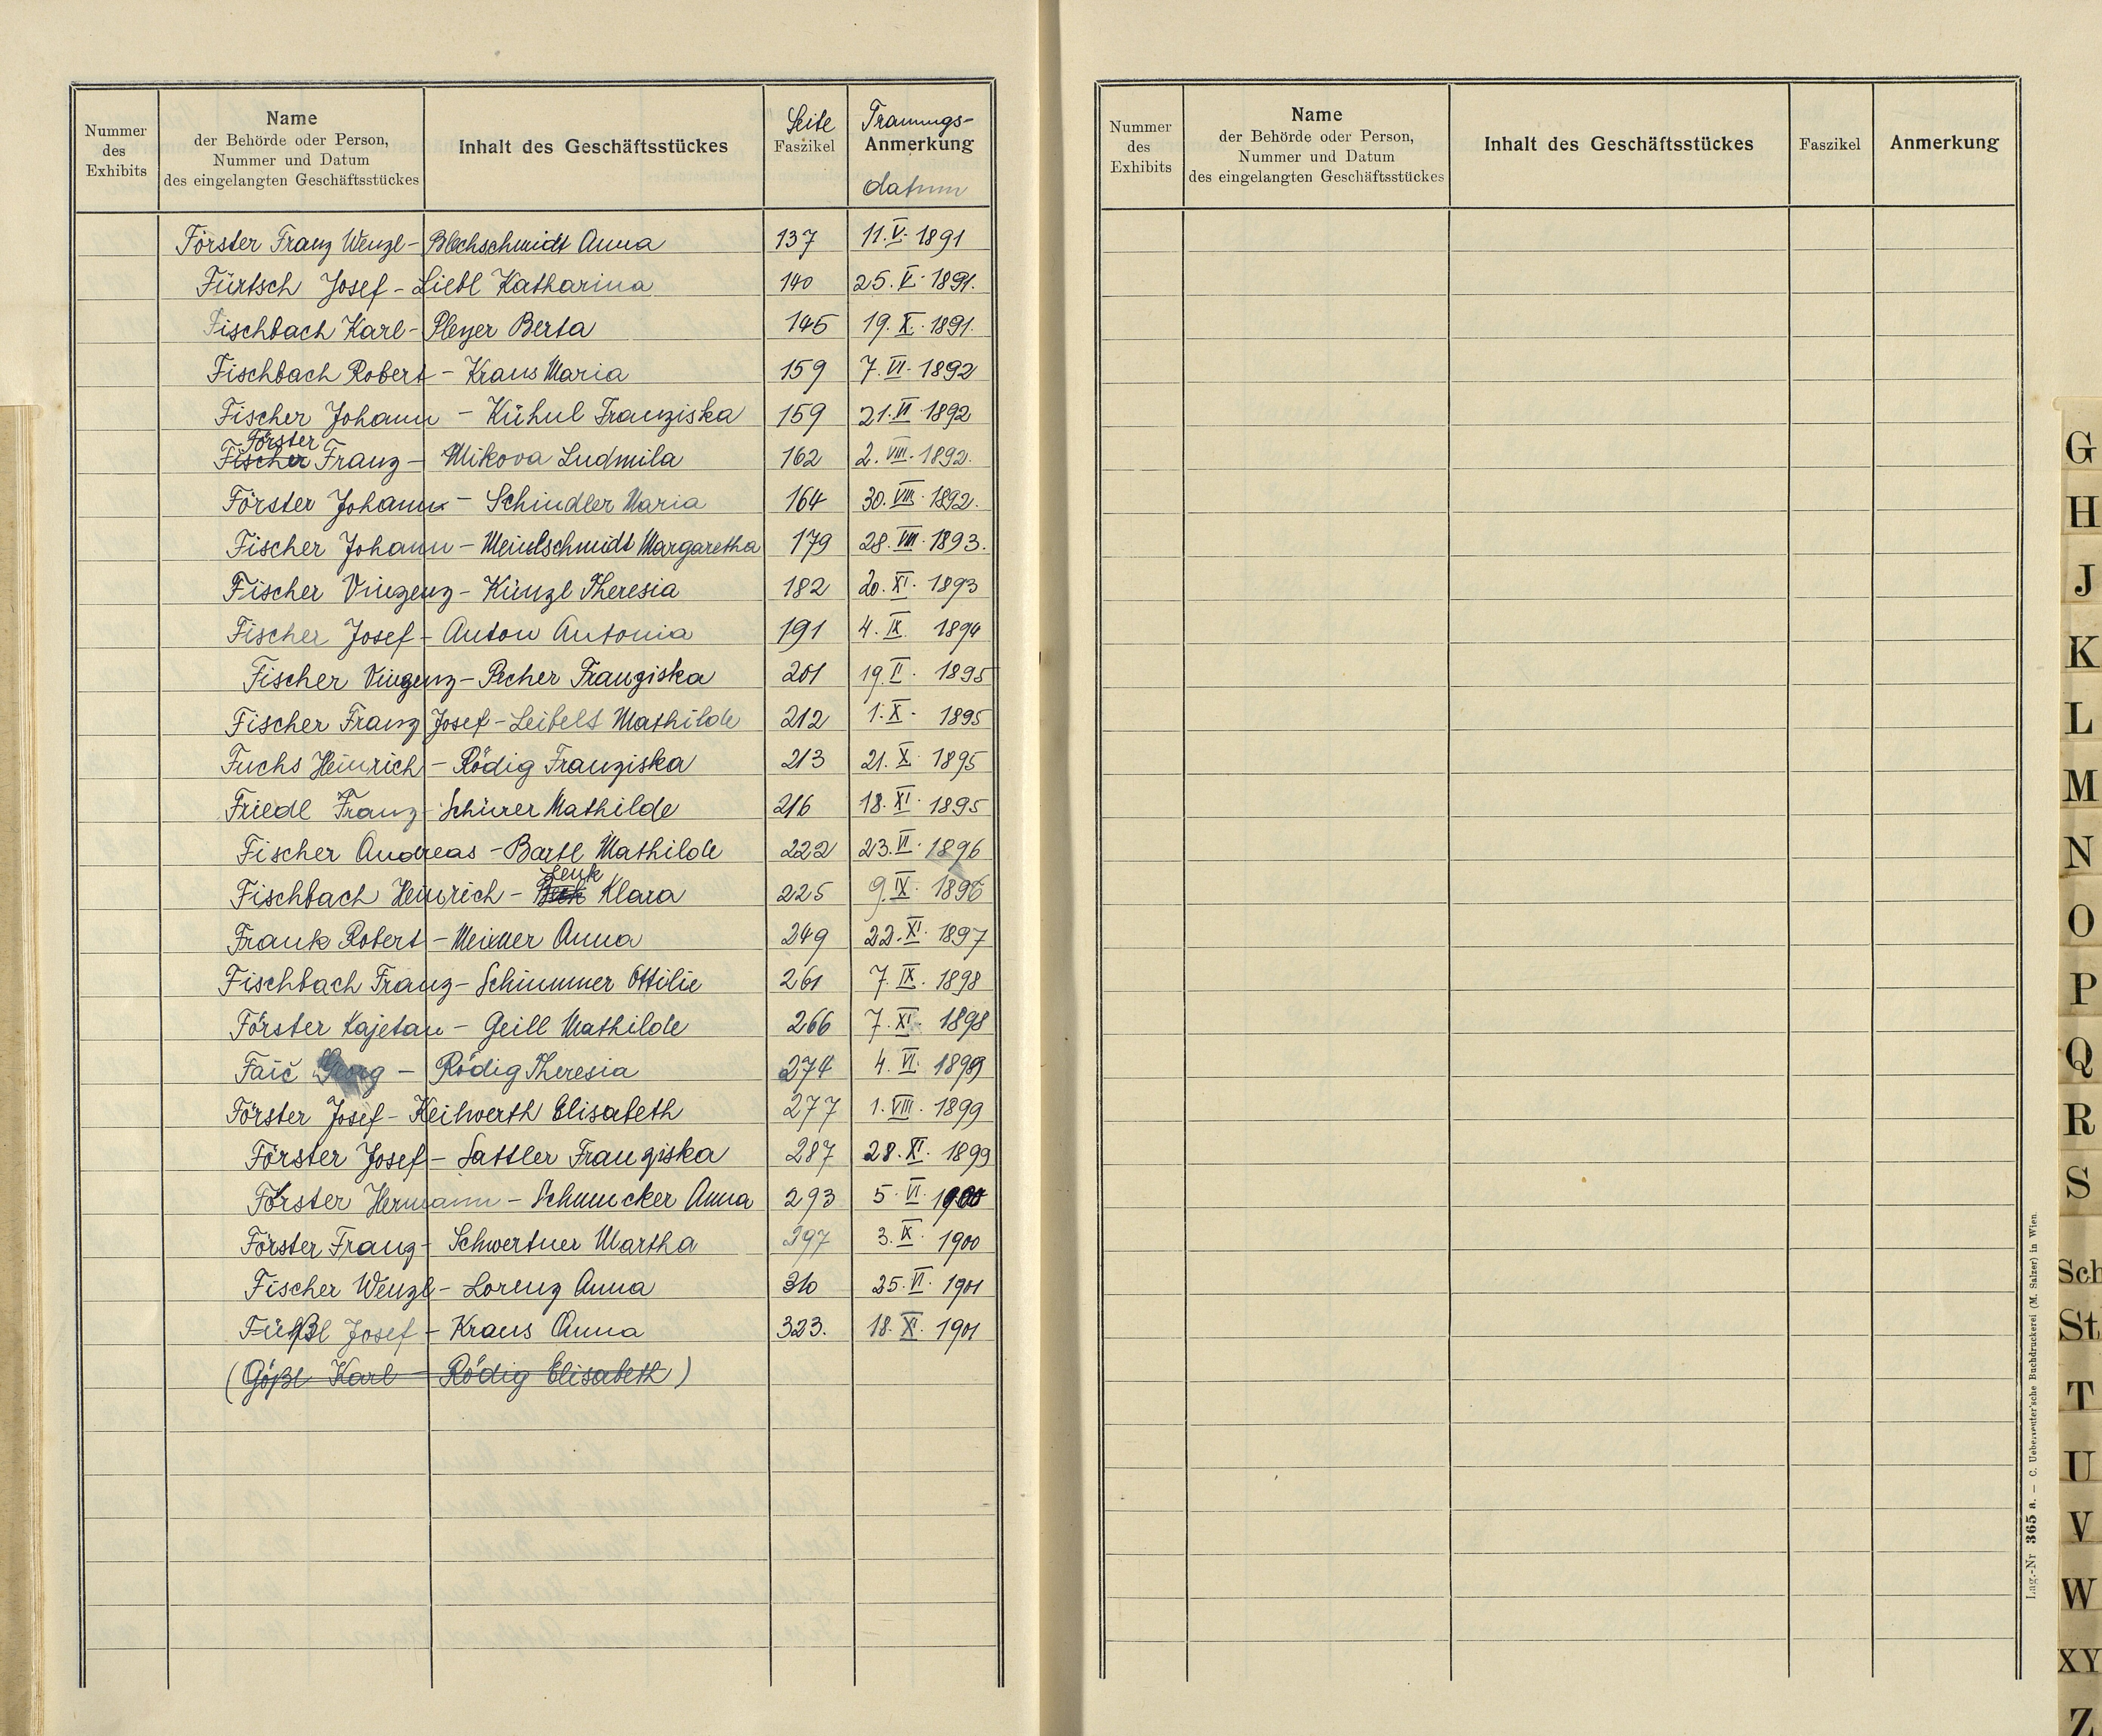 Nummer des Exhibits
Name der Behörde oder Person, Nummer und Datum des eingelangten Geschäftsstückes
Inhalt des Geschäftsstückes
Seite Faszikel
Trauungs- Anmerkung datum
Förster Franz Wenzl - Blechschmidt Anna 137 11. V. 1891
Fürtsch Josef - Liebl Katharina 140 25. V. 1891.
Fischbach Karl - Pleyer Berta 145 19. X. 1891.
Fischbach Robert - Kraus Maria 159 7. VI. 1892
Fischer Johann - Kühnl Franziska 159 21. VI 1892
Förster
Fischer Franz - Mikova Ludmila 162 2. VIII. 1892.
Förster Johann - Schindler Maria 164 30. VIII. 1892.
Fischer Johann - Meindlschmidt Margaretha 179 28. VIII. 1893.
Fischer Vinzenz - Künzl Theresia 182 20. XI. 1893
Fischer Josef - Anton Antonia 191 4. IX. 1894
Fischer Vinzenz - Pecher Franziska 201 19. II. 1895
Fischer Franz Josef - Leibelt Mathilde 212 1. X. 1895
Fuchs Heinrich - Rödig Franziska 213 21. X. 1895
Friedl Franz - Schürer Mathilde 216 18. XI. 1895
Fischer Andreas - Bartl Mathilde 222 23. VI. 1896
Lenk
Fischbach Heinrich - Klara 225 9. IX. 1896
Frank Robert - Meixner Anna 249 22. XI. 1897
Fischbach Franz - Schimmer Ottilie 261 7. IX. 1898
Förster Kajetan - Geill Mathilde 266 7. XI. 1898
Faič Georg - Rödig Theresia 274 4. VI. 1899
Förster Josef - Keilwerth Elisabeth 277 1. VIII. 1899
Förster Josef - Sattler Franziska 287 28. XI. 1899
Förster Hermann - Schmucker Anna 293 5. VI. 1900
Förster Franz - Schwertner Martha 297 3. IX. 1900
Fischer Wenzl - Lorenz Anna 310 25. VI. 1901
Füßl Josef - Kraus Anna 323. 18. XI. 1901
(Gößl Karl - Rödig Elisabeth)
Nummer des Exhibits
Name der Behörde oder Person, Nummer und Datum des eingelangten Geschäftsstückes
Inhalt des Geschäftsstückes
Faszikel
Anmerkung
Lag.-Nr 365 a. — C. Ueberreuter'sche Buchdruckerei (M. Salzer) in Wien.
G
H
J
K
L
M
N
O
P
Q
R
S
Sch
St
T
U
V
W
XY
Z